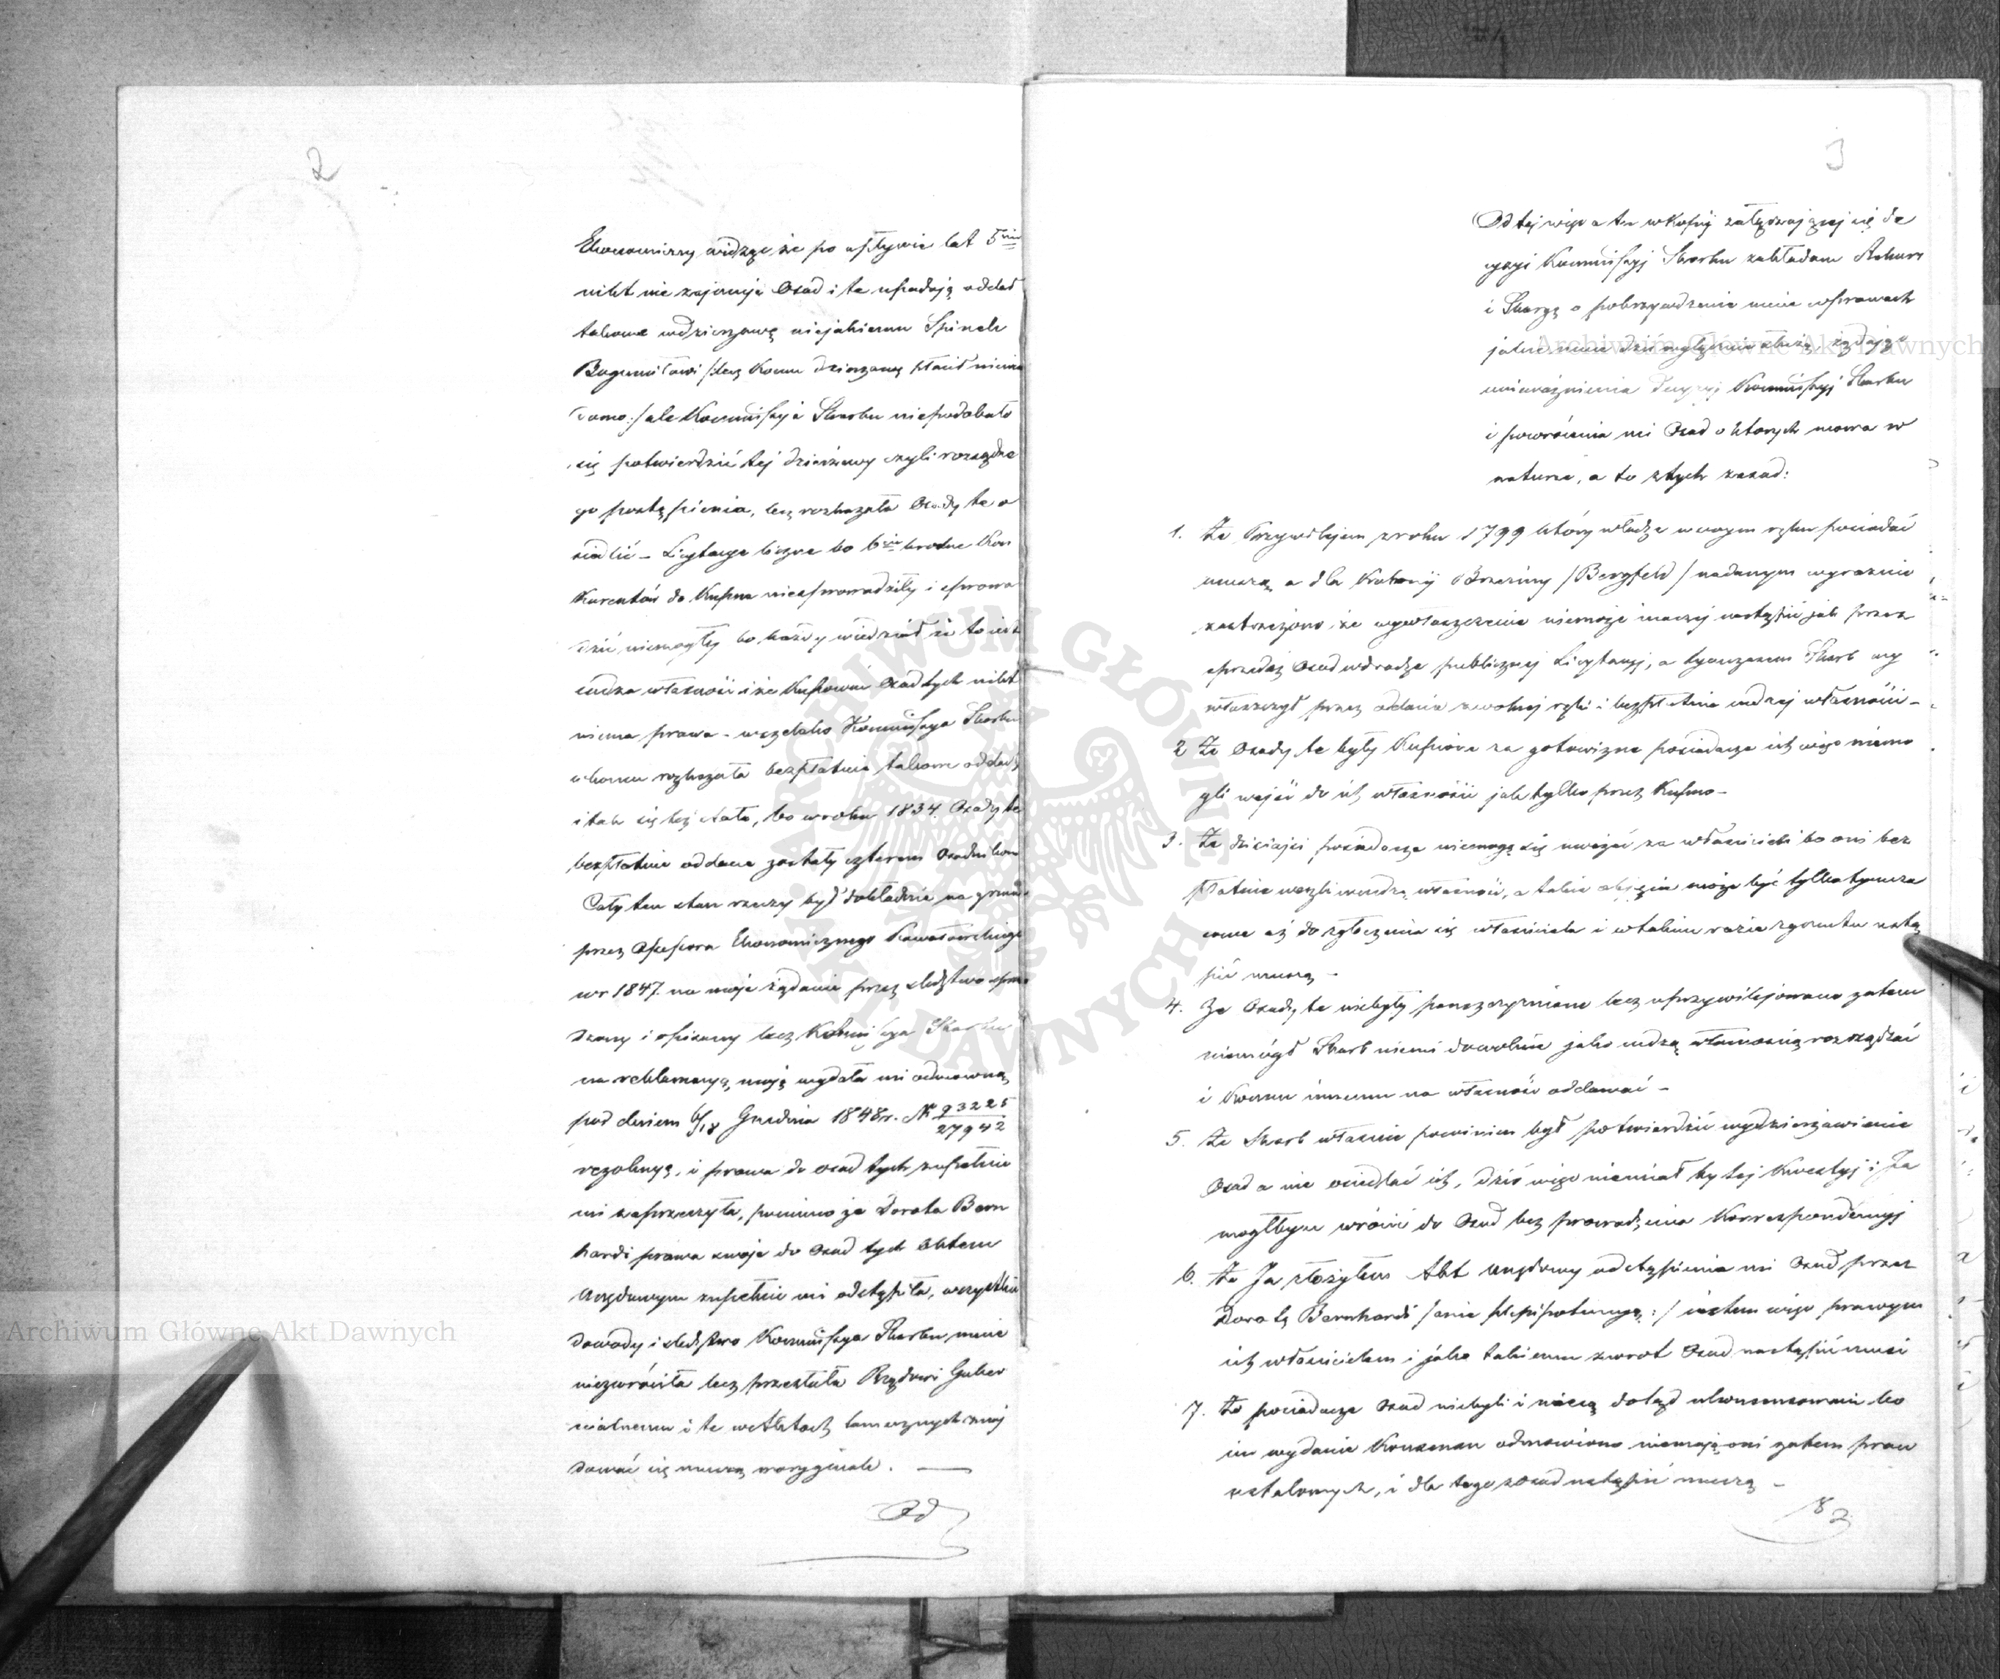 2
Ekonomiczny widząc że po upływie lat 5ciu
nikt nie zajmuje Osad i te upadają oddał
takowe wdzierzawę niejakiemu Spinek
Bogumiłowi /: lecz komu dzierzawę płacił niewia
domo :/ ale Kommissyi Skarbu niepodobało
się potwierdzić tej dzierżawy czyli rozsądne
go postąpienia, lecz rozkazała Osady te o
siedlić – Licytacye liczne bo 6cio krotne Kon
kurentów do Kupna niesprowadziły i sprowa
dzić niemogły bo każdy wiedział że to iest
cudza własność i że Kupować Osad tych nikt
niema prawa – wszelako Kommissya Skarbu
w koncu rozkazała bezpłatnie takowe oddać
i tak się też stało, bo w roku 1834. Osady te
bezpłatnie oddane zostały czterem Osadnikom
Cały ten stan rzeczy był dokładnie na gruncie
przez Assessora Ekonomicznego
w r 1847. na moje żądanie przez śledztwo spraw
dzony i opisany lecz Kommissya Skarbu
na reklamacyą moją wydała mi odmowną
pod dniem 6/18 Grudnia 1848 r. N 93225
27942
rezolucyą, i prawa do osad tych zupełnie
mi zaprzeczyła, pomimo że Dorota Bern
hardi prawa swoje do Osad tych Aktem
Urzędowym zupełnie mi odstąpiła, wszystkie
dowody i śledztwo Kommissya Skarbu mnie
niezwróciła lecz przesłała Rządowi Guber
nialnemu i te w Aktach tamecznych znaj
dować się muszą w oryginale. —
Od
3
Od tej więc a ten w kopij załączającej się de
cyzyi Kommissyj Skarbu zakładam Rekurs
i Skargę o pokrzywdzenie mnie w prawach
jakie mnie względnie służą żądając
unieważnienia Decyzyj Kommissyj Skarbu
i powrócenia mi Osad o ktorych mowa w
naturze, a to z tych zasad:
1. Że Przywilejem z roku 1799 który władze w swym ręku posiadać
muszą a dla Kolonij Brzeziny /Bergfeld/ nadanym wyraznie
zastrzeżono że wywłaszczenie niemoże inaczej nastąpić jak przez
sprzedaż Osad wdrodze publicznej Licytacyj, a tymczasem Skarb wy
właszczył przez oddanie z wolnej ręki i bezpłatnie cudzej własności –
2 Że Osady te były Kupione za gotowiznę posiadacze ich więc niemo
gli wejść do ich własności jak tylko przez Kupno –
3. Że dzisiejsi posiadacze niemogą się uważać za właścicieli bo oni bez
płatnie weszli w cudzą własność, a takie objęcie może być tylko tymcza
sowe aż do zgłoszenia się właściciela i w takim razie z gruntu ustą
pić muszą –
4. Że Osady te niebyły pańszczyzniane lecz uprzywilejowane zatem
niemógł Skarb niemi dowolnie jako cudzą własnością rozrządzać
i Komu innemu na własność oddawać –
5. Że Skarb własnie powinien był potwierdzić wydzierzawienie
Osad a nie osiedlać ich, dziś więc niemiał by tej Kwestyj i Ja
mogłbym wrócić do Osad bez prowadzenia Korrespondencyj
6. Że Ja złożyłem Akt urzędowy odstąpienia mi Osad przez
Dorotę Bernhardi /: a nie plenipotencyą :/ iestem więc prawym
ich właścicielem i jako takiemu zwrot Osad nastąpić musi
7. Że posiadacze Osad niebyli i niesą dotąd ukonsensowani bo
im wydanie Konsensu odmowiono niemają oni zatem praw
ustalonych, i dla tego z Osad ustąpić muszą –
8 Ż
Archiwum Główne Akt Dawnych
Archiwum Główne Akt Dawnych
ARCHIWUM GŁÓWNE AKT DAWNYCH